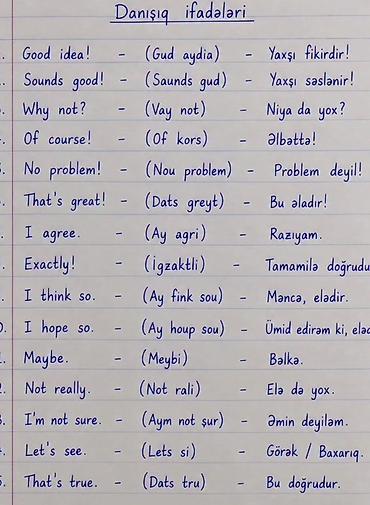 Danışıq ifadələri
Good idea! - (Gud aydia) - Yaxşı fikirdir!
Sounds good! - (Saunds gud) - Yaxşı səslənir!
Why not? - (Vay not) - Niyə da yox?
Of course! - (Of kors) - Əlbəttə!
No problem! - (Nou problem) - Problem deyil!
That's great! - (Dats greyt) - Bu əladır!
I agree. - (Ay agri) - Razıyam.
Exactly! - (İgzaktli) - Tamamilə doğrudu
I think so. - (Ay fink sou) - Məncə, elədir.
I hope so. - (Ay houp sou) - Ümid edirəm ki, eləd
Maybe. - (Meybi) - Bəlkə.
Not really. - (Not rali) - Elə də yox.
I'm not sure. - (Aym not şur) - Əmin deyiləm.
Let's see. - (Lets si) - Görək / Baxarıq.
That's true. - (Dats tru) - Bu doğrudur.